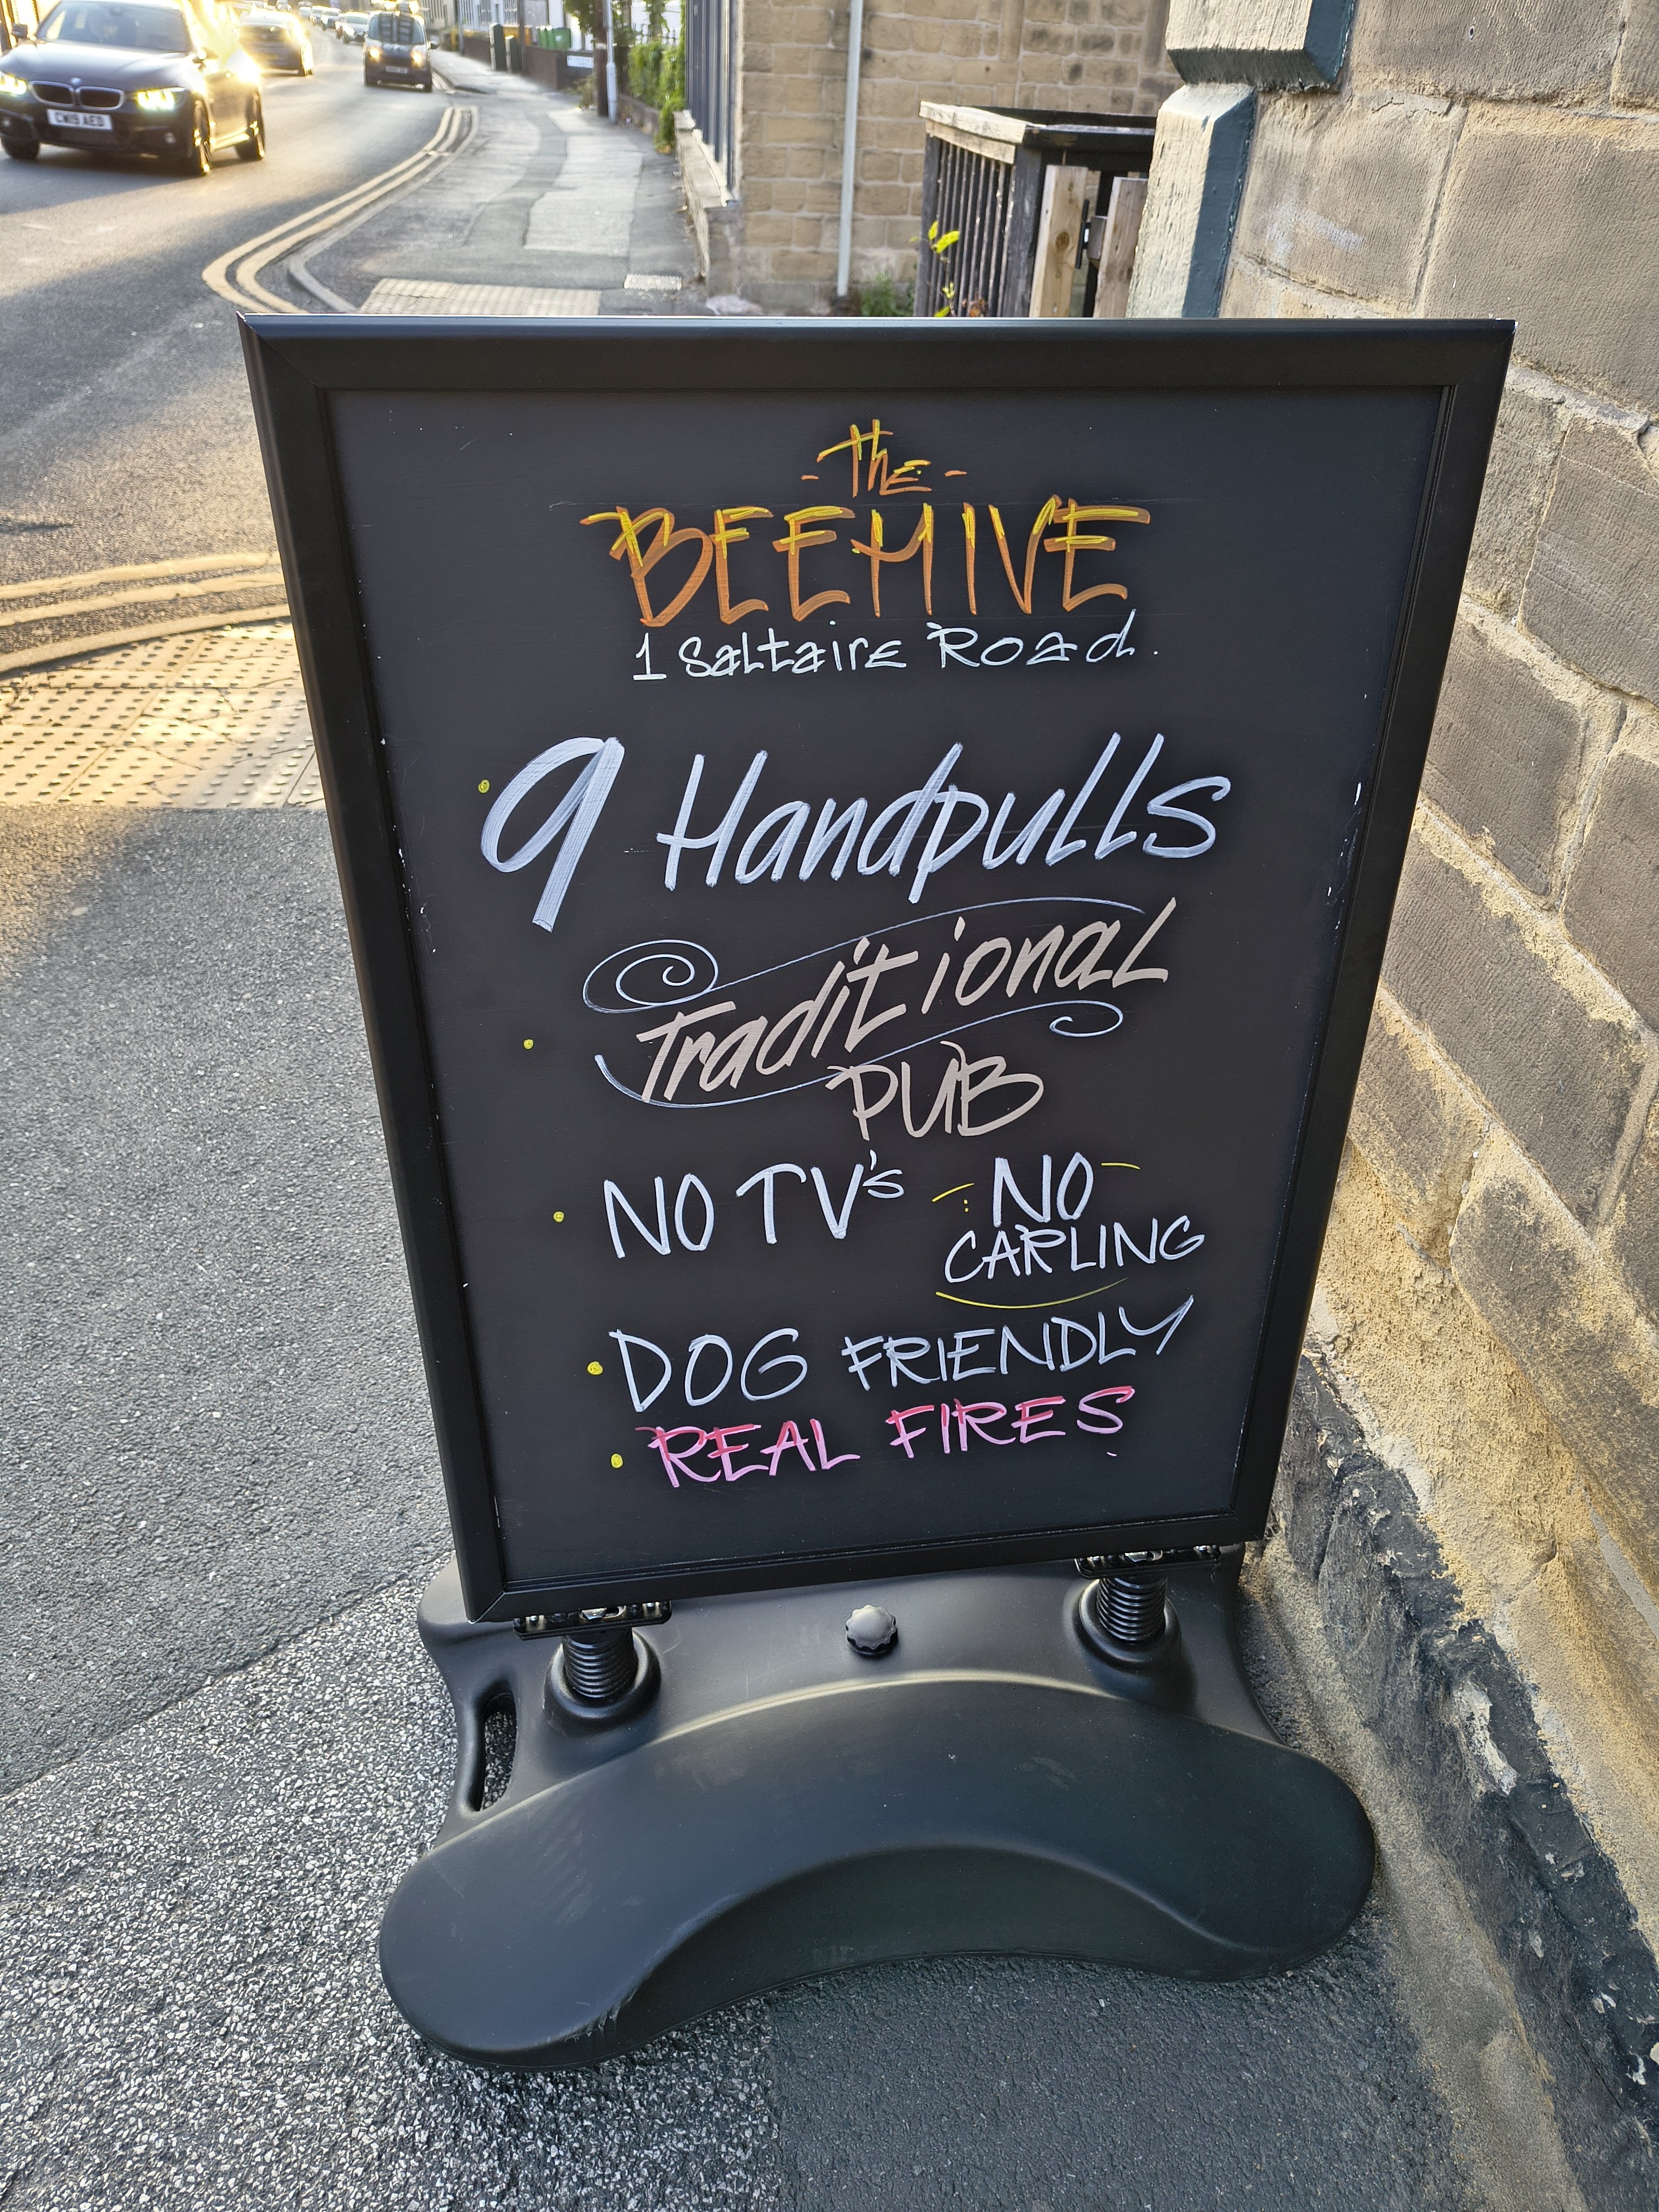 CW19 AED
- The -
BEEHIVE
1 Saltaire Road.
• 9 Handpulls
• Traditional
PUB
• NO TV's NO
CARLING
• DOG FRIENDLY
• REAL FIRES